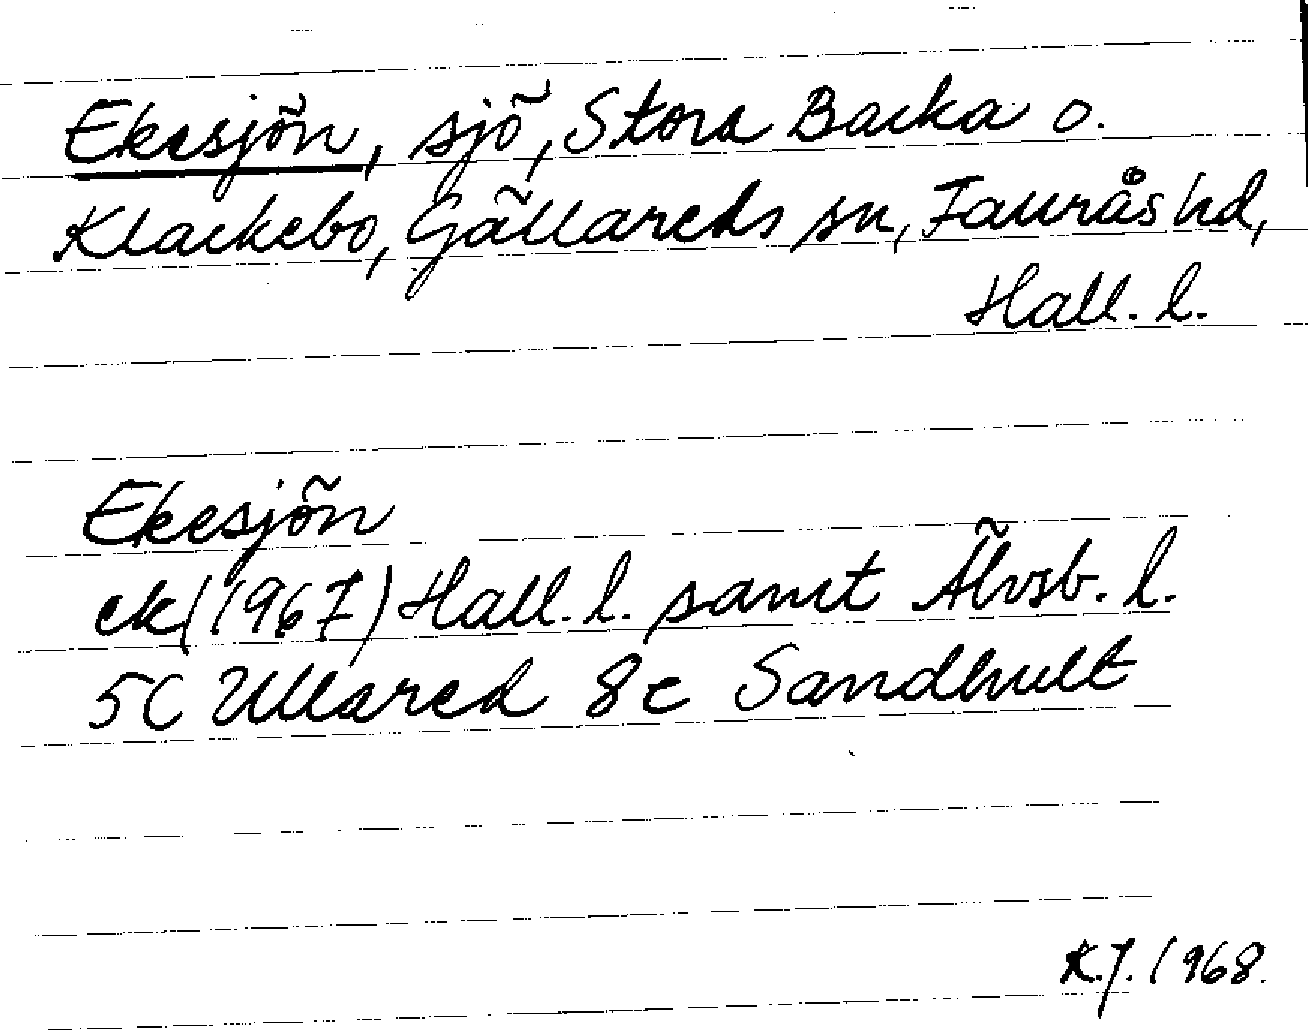 Ekesjön, sjö, Stora Backa o.
Klackebo, Gällareds sn, Faurås hd,
Hall. l.
Ekesjön
ek (1967) Hall. l. samt Älvsb. l.
5C Ullared 8c Sandhult
K.J. 1968.